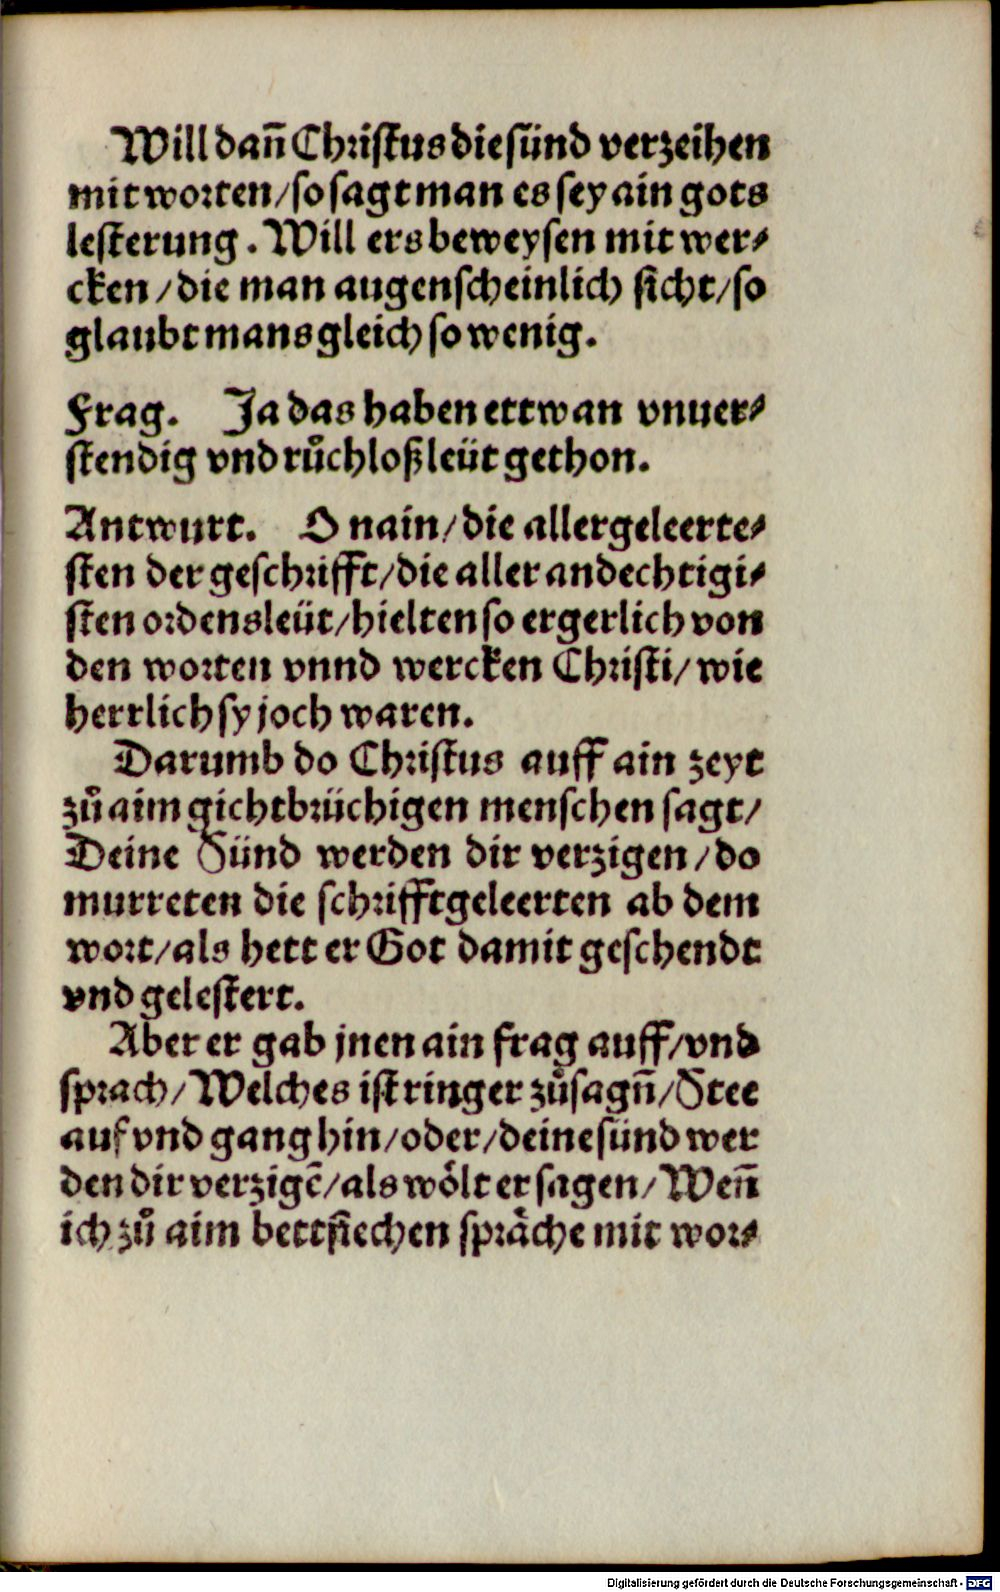 Will dañ Christus die sünd verzeihen
mit worten / so sagt man es sey ain gots
lesterung . Will ers beweysen mit wer⸗
cken / die man augenscheinlich sicht / so
glaubt mans gleich so wenig .
Frag . Ja das haben ettwan vnuer⸗
stendig vnd růchloß leüt gethon .
Antwurt . O nain / die allergeleerte⸗
sten der geschrifft / die aller andechtigi⸗
sten ordensleüt / hielten so ergerlich von
den worten vnnd wercken Christi / wie
herrlich sy joch waren .
Darumb do Christus auff ain zeyt
zů aim gichtbrüchigen menschen sagt /
Deine Sünd werden dir verzigen / do
murreten die schrifftgeleerten ab dem
wort / als hett er Got damit geschendt
vnd gelestert .
Aber er gab jnen ain frag auff / vnd
sprach / Welches ist ringer zůsagñ / Stee
auf vnd gang hin / oder / deine sünd wer
den dir verzigē / als woͤlt er sagen / Weñ
ich zů aim bettsiechen spraͤche mit wor⸗
Digitalisierung gefördert durch die Deutsche Forschungsgemeinschaft - DFG